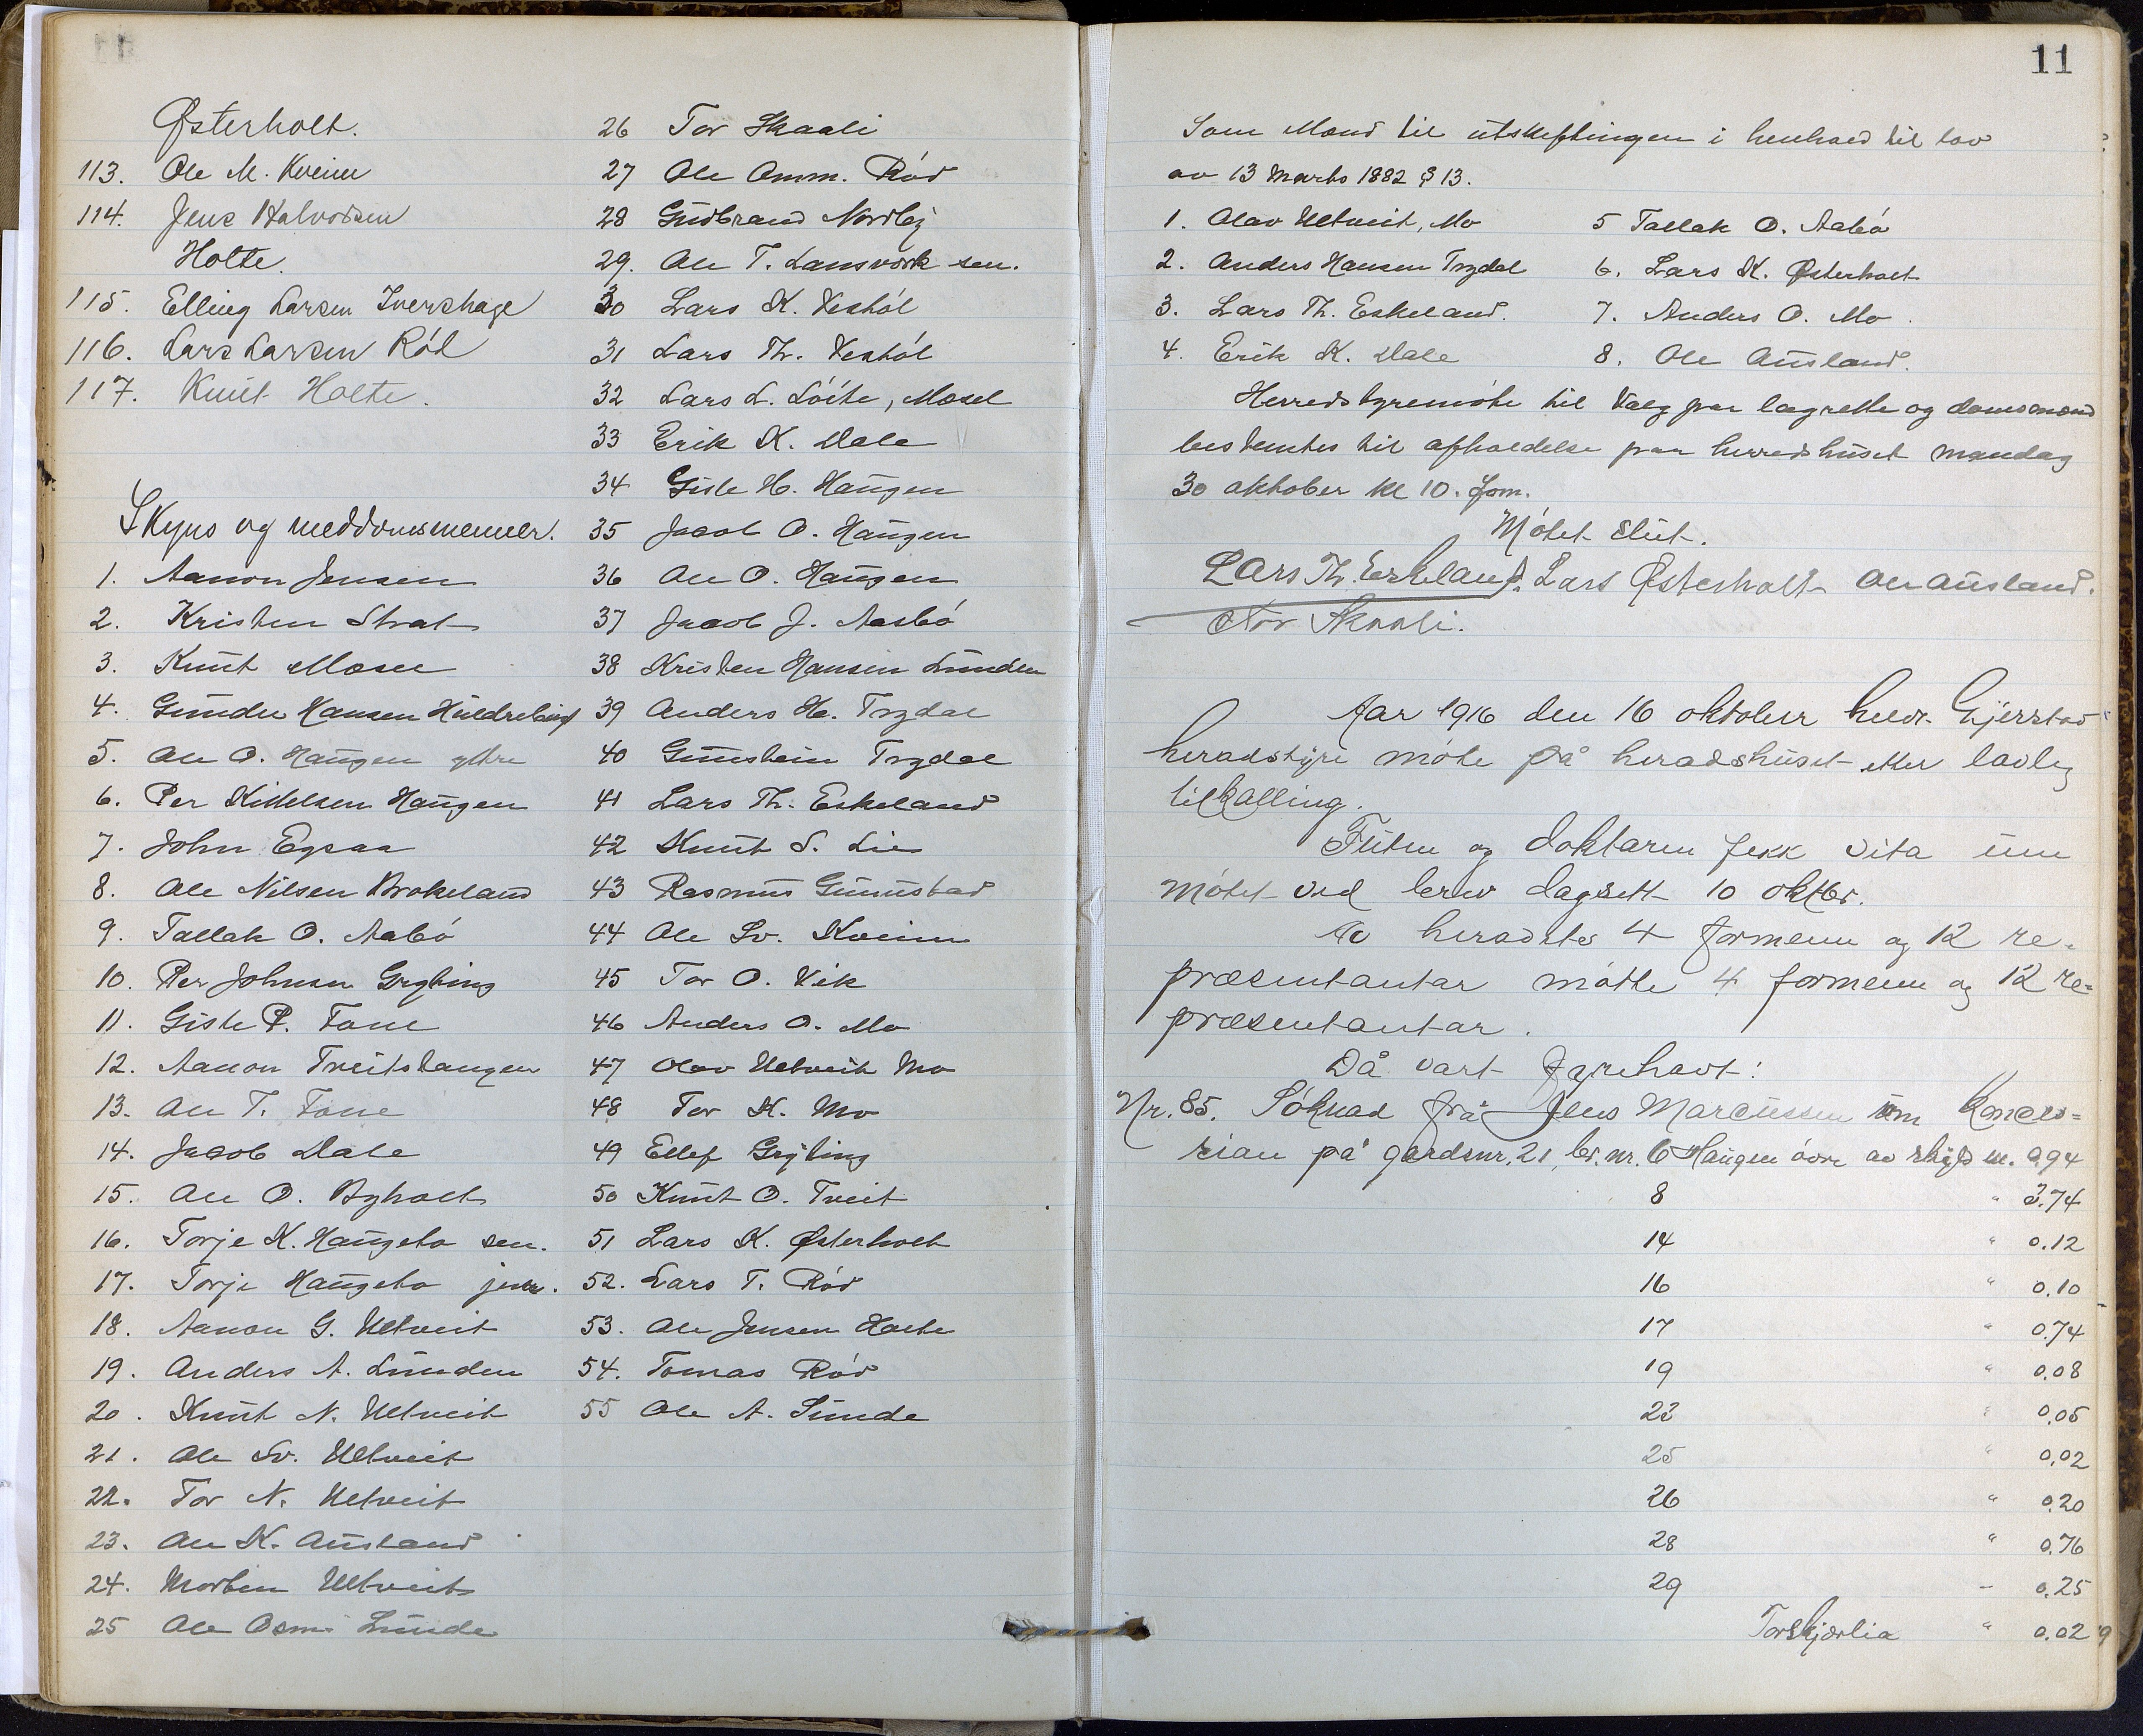 Østerholt.
113. Ole M. Kveim
114. Jens Halvorsen
Holte.
115. Elling Larsen Ivershage
116. Lars Larsen Röd
117. Knut Holte.
Skyns og meddomsmenner.
1. Aanon Jensen
2. Kristen Strat
3. Knut Mosee
4. Gunder Hansen
5. Ole O. Haugen ytre
6. Per Kittelsen Haugen
7. John Egsaa
8. Ole Nilsen Brokeland
9. Tallak O. Aabö
10. Per Johnsen Gryting
11. Gisle P. Fone
12. Aanon Tveitshaugen
13. Ole T. Fone
14. Jacob Dale
15. Ole O. Byholt
16. Torje K. Haugeto sen.
17. Torje Haugeto jun.
18. Aanon G. Ueltveit
19. Anders A. Lunden
20. Knut N. Ueltveit
21. Ole Sv. Ueltveit
22. Tor N. Ueltveit
23. Ole K. Ausland
24. Morten Ueltveit
25 Ole Osm. Lunde
26 Tor Skaali
27 Ole Omm. Röd
28 Gudbrand Nordby
29. Ole T. Lansverk sen.
30 Lars K. Vestöl
31 Lars Th. Vestöl
32 Lars L. Löite, Mosel
33 Erik K. Dale
34 Gisle H. Haugen
35 Jacob O. Haugen
36 Ole O. Haugen
37 Jacob J. Aasbö
38 Kristen Hansen Lunden
39 Anders H. Trydal
40 Gunstein Trydal
41 Lars Th. Eskeland
42 Knut S. Lie
43 Rasmus Sunnsbad
44 Ole Sv. Kveim
45 Tor O. Vik
46 Anders O. Mo
47 Olav Ueltveit Mo
48 Tor K. Mo
49 Ellef Gryting
50 Knut O. Tveit
51 Lars K. Østerholt
52. Lars T. Röd
53. Ole Jensen Holte
54. Tomas Röd
55 Ole A. Sunde
11
Som Mænd til utskiftingen i henhold til lov
av 13 Marts 1882 § 13.
1. Olav Ueltveit, Mo 5 Tallak O. Aabö
2. Anders Hansen Trydal 6. Lars K. Østerholt
3. Lars Th. Eskeland. 7. Anders O. Mo.
4. Erik K. Dale 8. Ole Ausland.
Herredstyremöte til Valg paa lagrette og domsmænd
bestemtes til afholdelse paa herredshuset mandag
30 oktober kl 10. fom.
Mötet slut.
Lars Th. Eskeland. Lars Østerholt Ole Ausland.
Tor Skaali.
Aar 1916 den 16 oktober heldt Gjerstad
heradstyre möte på heradshuset etter lovleg
tilkalling.
Futen og doktaren fekk vita um
mötet ved brev dagsett 10 oktbr.
Av heradets 4 formenn og 12 re-
præsentantar mötte 4 formenn og 12 re-
præsentantar.
Då vart fyrehavt:
Nr. 85. Söknad frå Jens Marcussen um Konces-
sian på gardsnr. 21, br. nr. 6 Haugen övre av skyld m. 0.94
8 " 3.74
14 " 0.12
16 " 0.10
17 " 0.74
19 " 0.08
22 " 0.05
25 " 0.02
26 " 0.20
28 " 0.76
29 - 0.25
Torskjærlia " 0.02